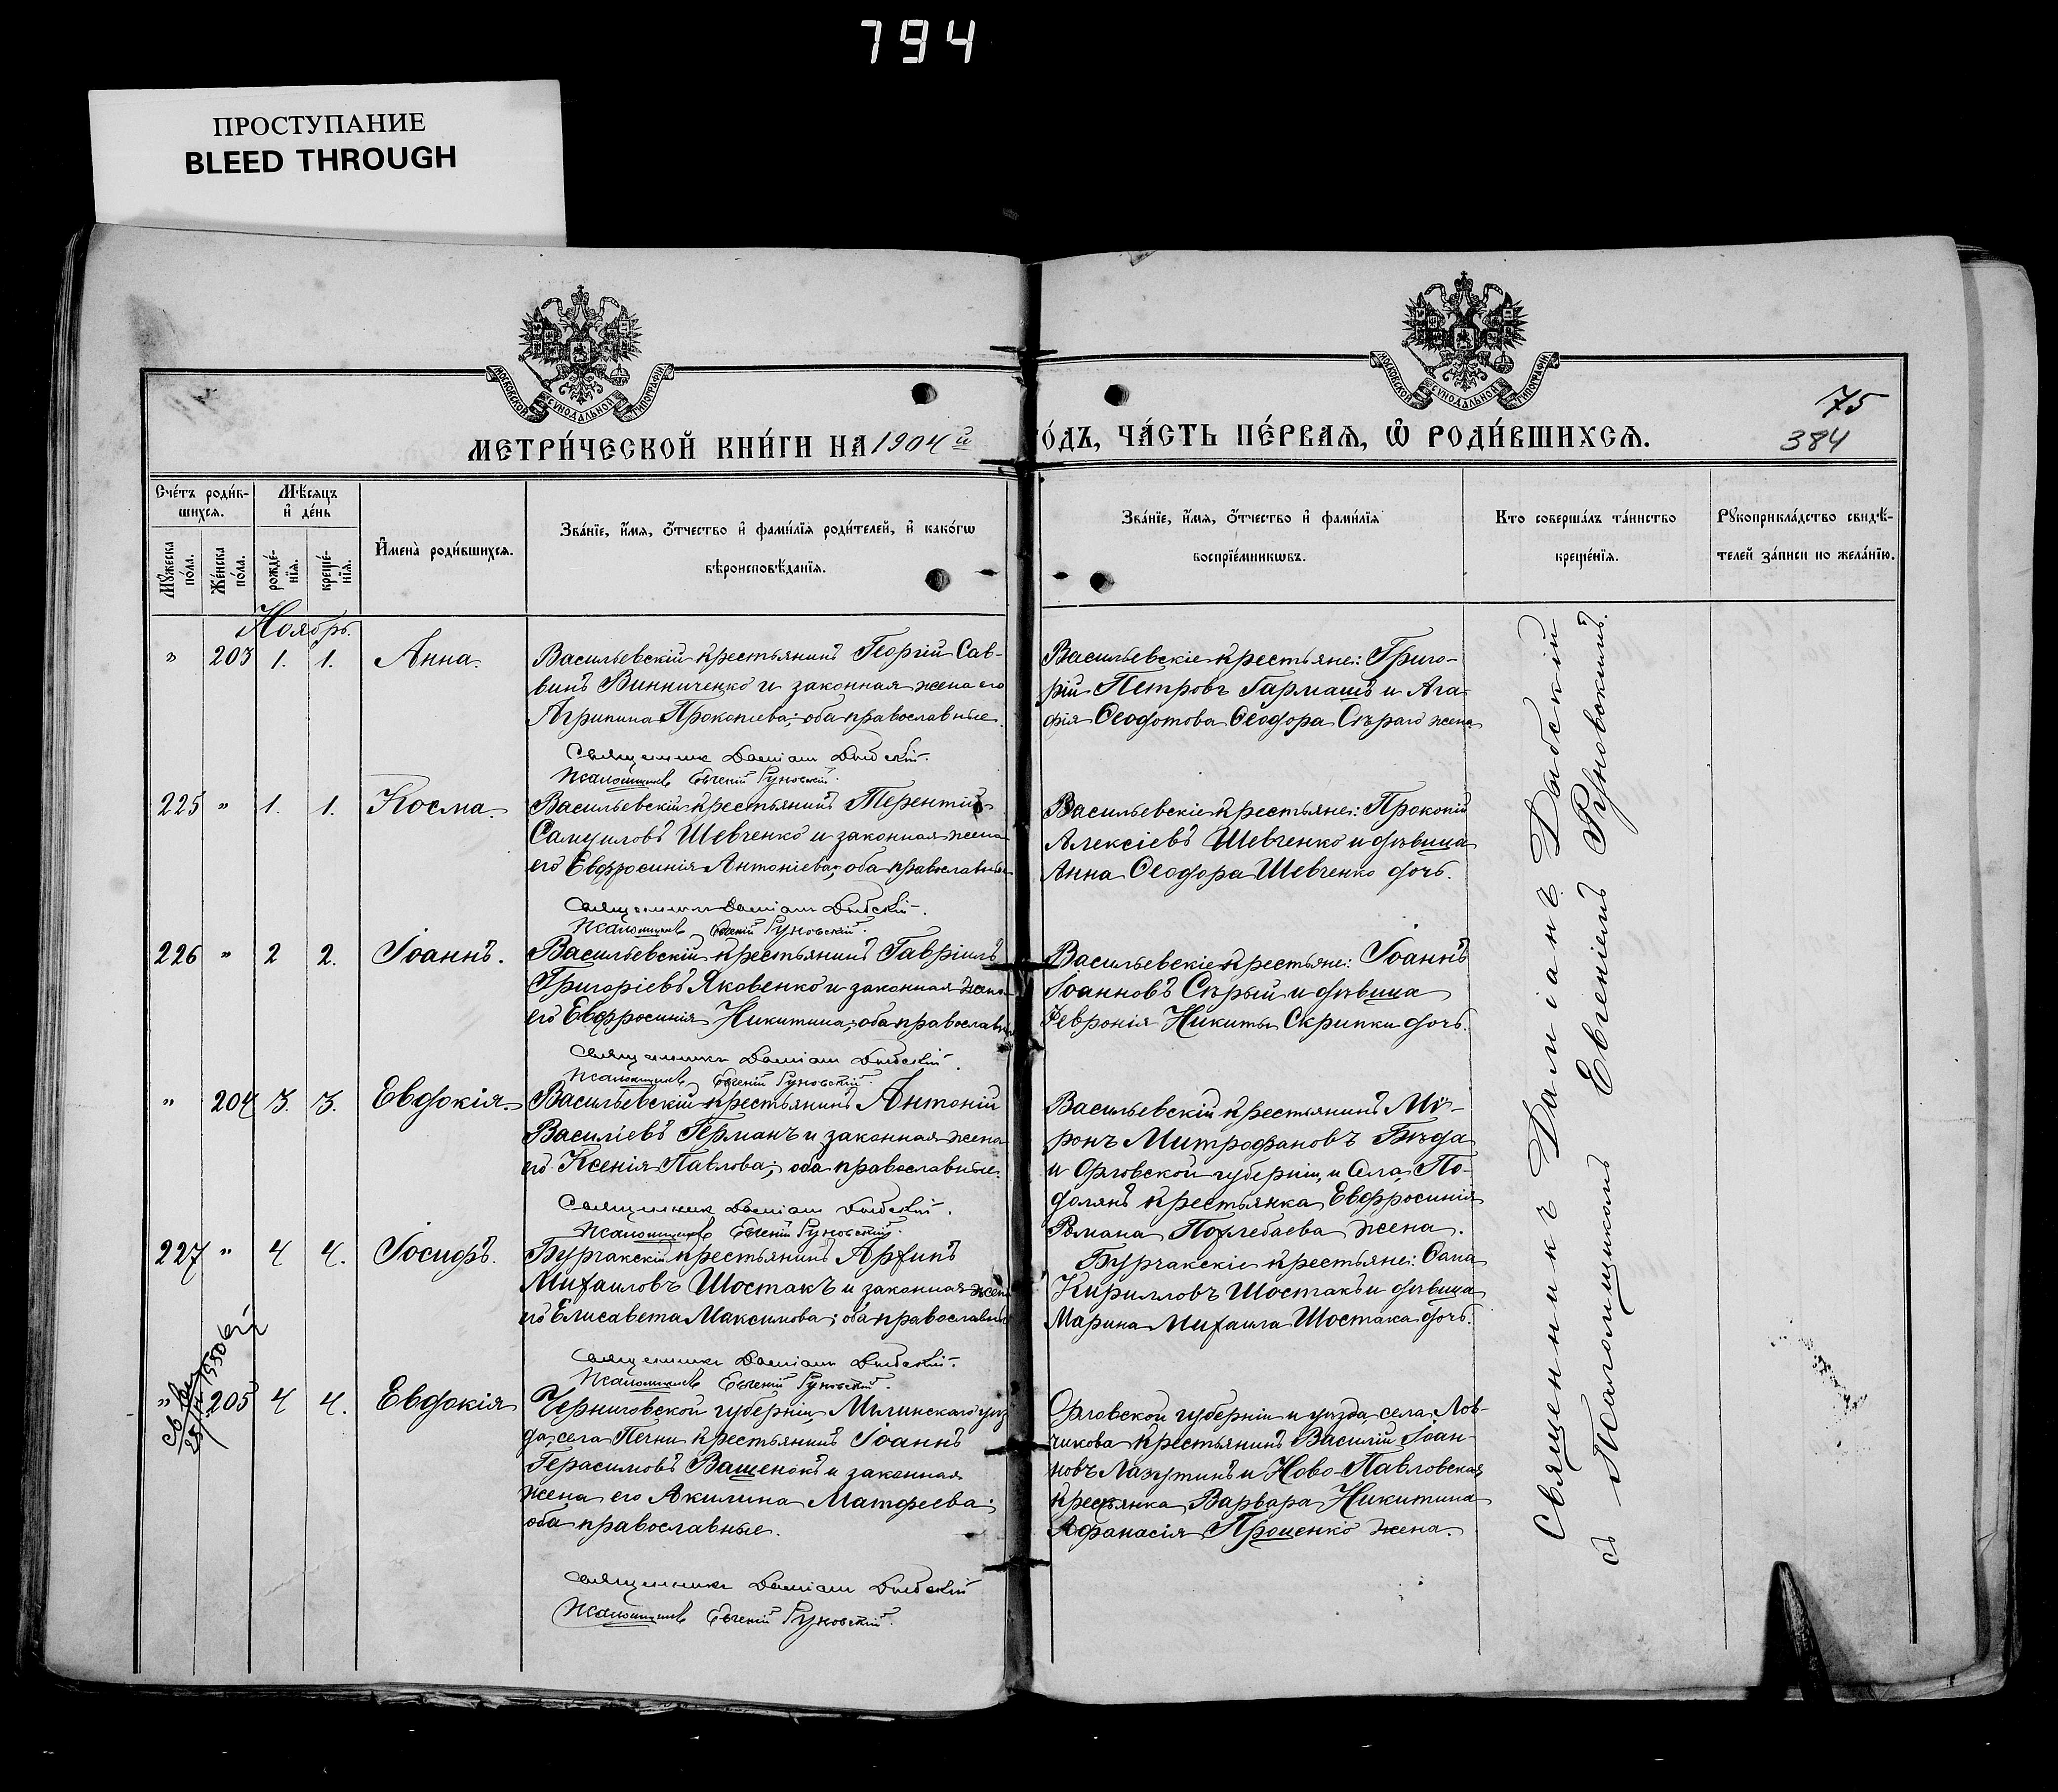 794
ПРОСТУПАНИЕ
BLEED THROUGH
МОСКОВСКОЙ СѴНОДАЛЬНОЙ ТИПОГРАФІИ
МОСКОВСКОЙ СѴНОДАЛЬНОЙ ТИПОГРАФІИ
75
384
МЕТРИ́ЧЕСКОЙ КНИ́ГИ НА 1904 й
О́ДЪ, ЧА́СТЬ ПЕ́РВАЯ, Ѽ РОДИ́ВШИХСЯ.
Счéтъ роди́в-
шихся.
Мѣ́сяцъ
и҆ де́нь
Мꙋ́жеска
по́ла.
Же́нска
по́ла.
рожде́-
нїѧ.
креще́-
нїѧ.
И҆мена̀ роди́вшихся.
Зва́нїе, и҆́мя, ѻ҆́тчество и҆ фами́лїя роди́телей, и҆ како́гѡ
вѣроисповѣ́данїя.
Зва́нїе, и҆́мя, ѻ҆́тчество и҆ фами́лїя
воспрїе́мникѡвъ.
Кто соверша́лъ та́инство
креще́нїя.
Рꙋкоприкла́дство свидѣ́-
телей за́писи по жела́нїю.
Ноябрь.
" 203 1. 1. Анна.
Васильевскій крестьянинъ Георгій Сав-
винъ Винниченко и законная жена его
Агрипина Прокопіева; оба православные.
Священник Даміан Дибскій.
Псаломщикъ Евгеній Руновскій.
Васильевскіе крестьяне: Григо-
рій Петровъ Гармашъ и Ага-
фія Ѳеодотова Ѳеодора Сѣраго жена
225 " 1. 1. Косма.
Васильевскій крестьянинъ Терентій
Самуиловъ Шевченко и законная жена
его Евфросинія Антоніева; оба православные
Священник Даміан Дибскій.
Псаломщикъ Евгеній Руновскій.
Васильевскіе крестьяне: Прокопій
Алексіевъ Шевченко и дѣвица
Анна Ѳеодора Шевченко дочь.
226 " 2 2. Іоаннъ.
Васильевскій крестьянинъ Гавріилъ
Григоріевъ Яковенко и законная жена
его Евфросинія Никитина; оба православн
Священникъ Даміан Дибскій.
Псаломщикъ Евгеній Руновскій.
Васильевскіе крестьяне: Іоаннъ
Іоанновъ Сѣрый и дѣвица
Февронія Никиты Скрипки дочь.
" 204 3. 3. Евдокія.
Васильевскій крестьянинъ Антоній
Василіевъ Германъ и законная жена
его Ксенія Павлова; оба православные.
Священник Даміан Дибскій.
Псаломщикъ Евгеній Руновскій.
Васильевскій крестьянинъ Мі-
ронъ Митрофановъ Бѣда
и Орловской губерніи, и Села По-
долянъ крестьянка Евфросинія
Романа Похлебаева жена.
227 " 4 4. Іосифъ.
Бурчакскій крестьянинъ Архипъ
Михаиловъ Шостакъ и законная жена
его Елисавета Максимова; оба православны
Священникъ Даміан Дибскій.
Псаломщикъ Евгеній Руновскій.
Бурчакскіе крестьяне: Савва
Кирилловъ Шостакъ и дѣвица
Марина Михаила Шостака дочь.
" 205 4 4. Евдокія
Черниговской губерніи Мглинскаго уѣз
да, села Печни крестьянинъ Іоаннъ
Герасимовъ Ващенокъ и законная
жена его Акилина Матфеева;
оба православные.
Священникъ Даміан Дибскій
Псаломщикъ Евгеній Руновскій.
Орловской губерніи и уѣзда, села Лов-
чикова крестьянинъ Василій Іоан-
новъ Лазутинъ и Ново-Павловская
крестьянка Варвара Никитина
Афанасія Проценко жена.
Священникъ Даміанъ Дибскій
съ Псаломщикомъ Евгеніемъ Руновскимъ.